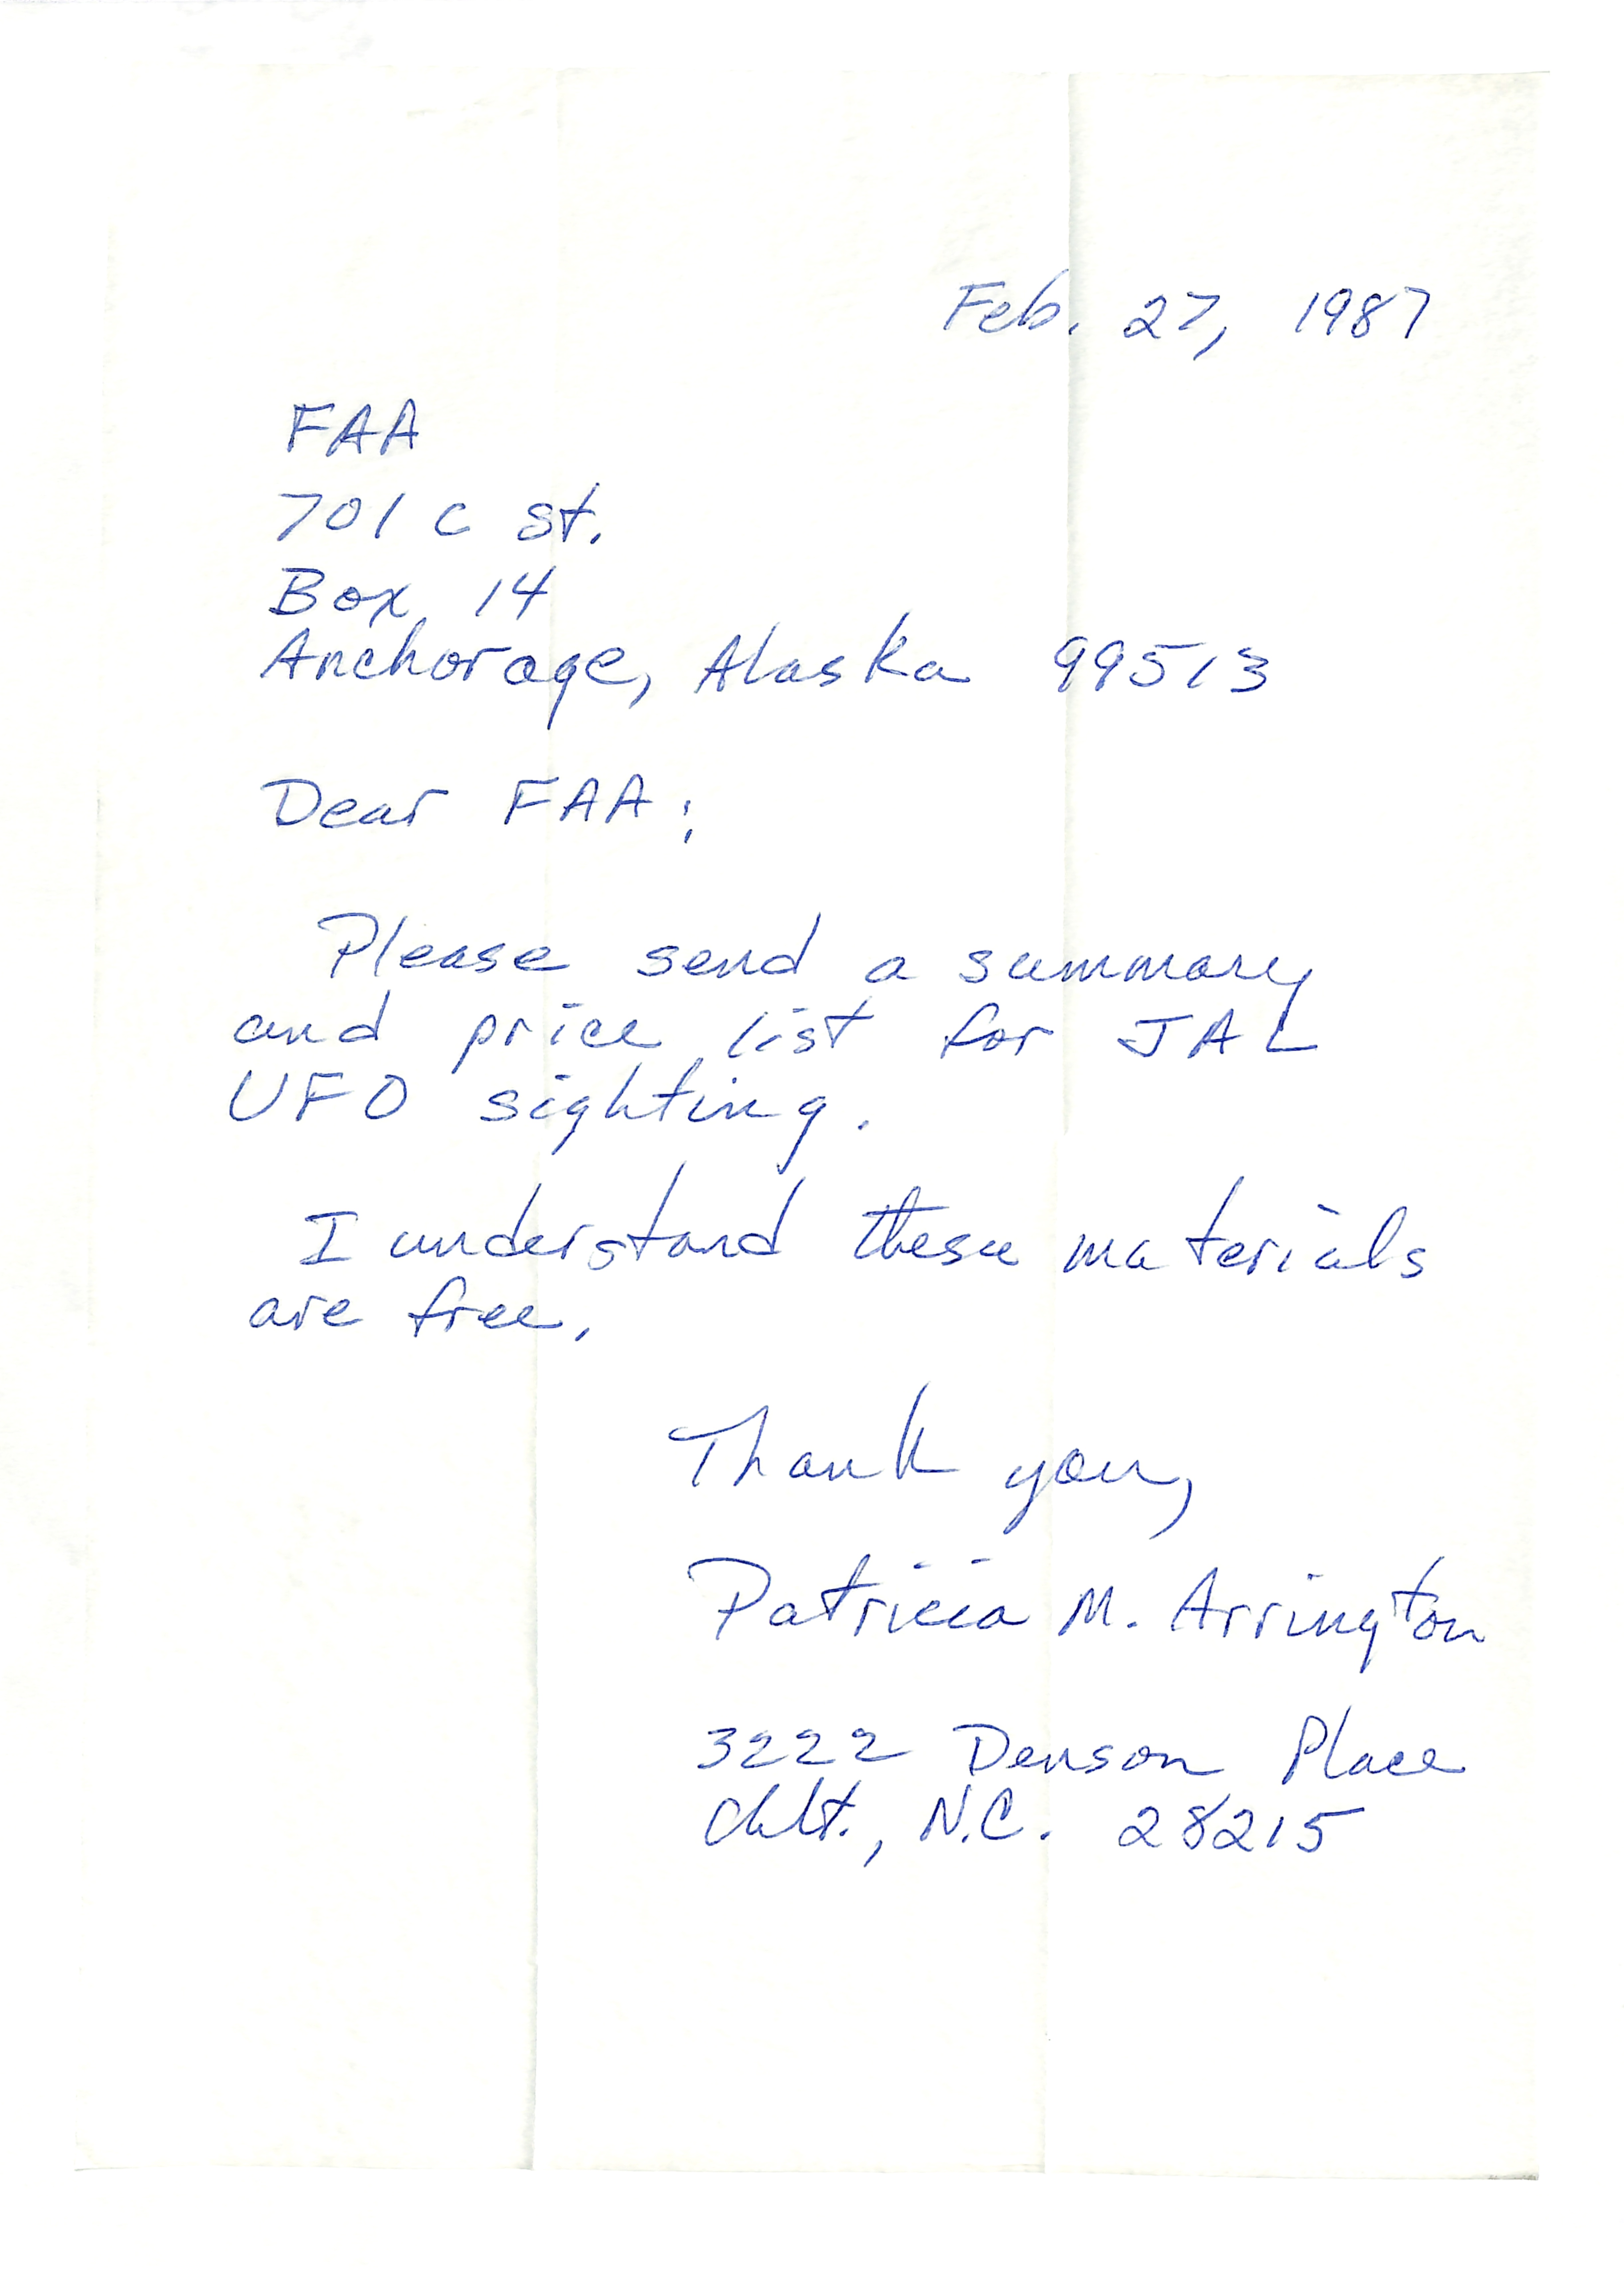 Feb. 27, 1987
FAA
701 C St.
Box 14
Anchorage, Alaska 99513
Dear FAA:
Please send a summary
and price list for JAL
UFO sighting.
I understand these materials
are free.
Thank you,
Patricia M. Arrington
3222 Denson Place
Chlt., N.C. 28215